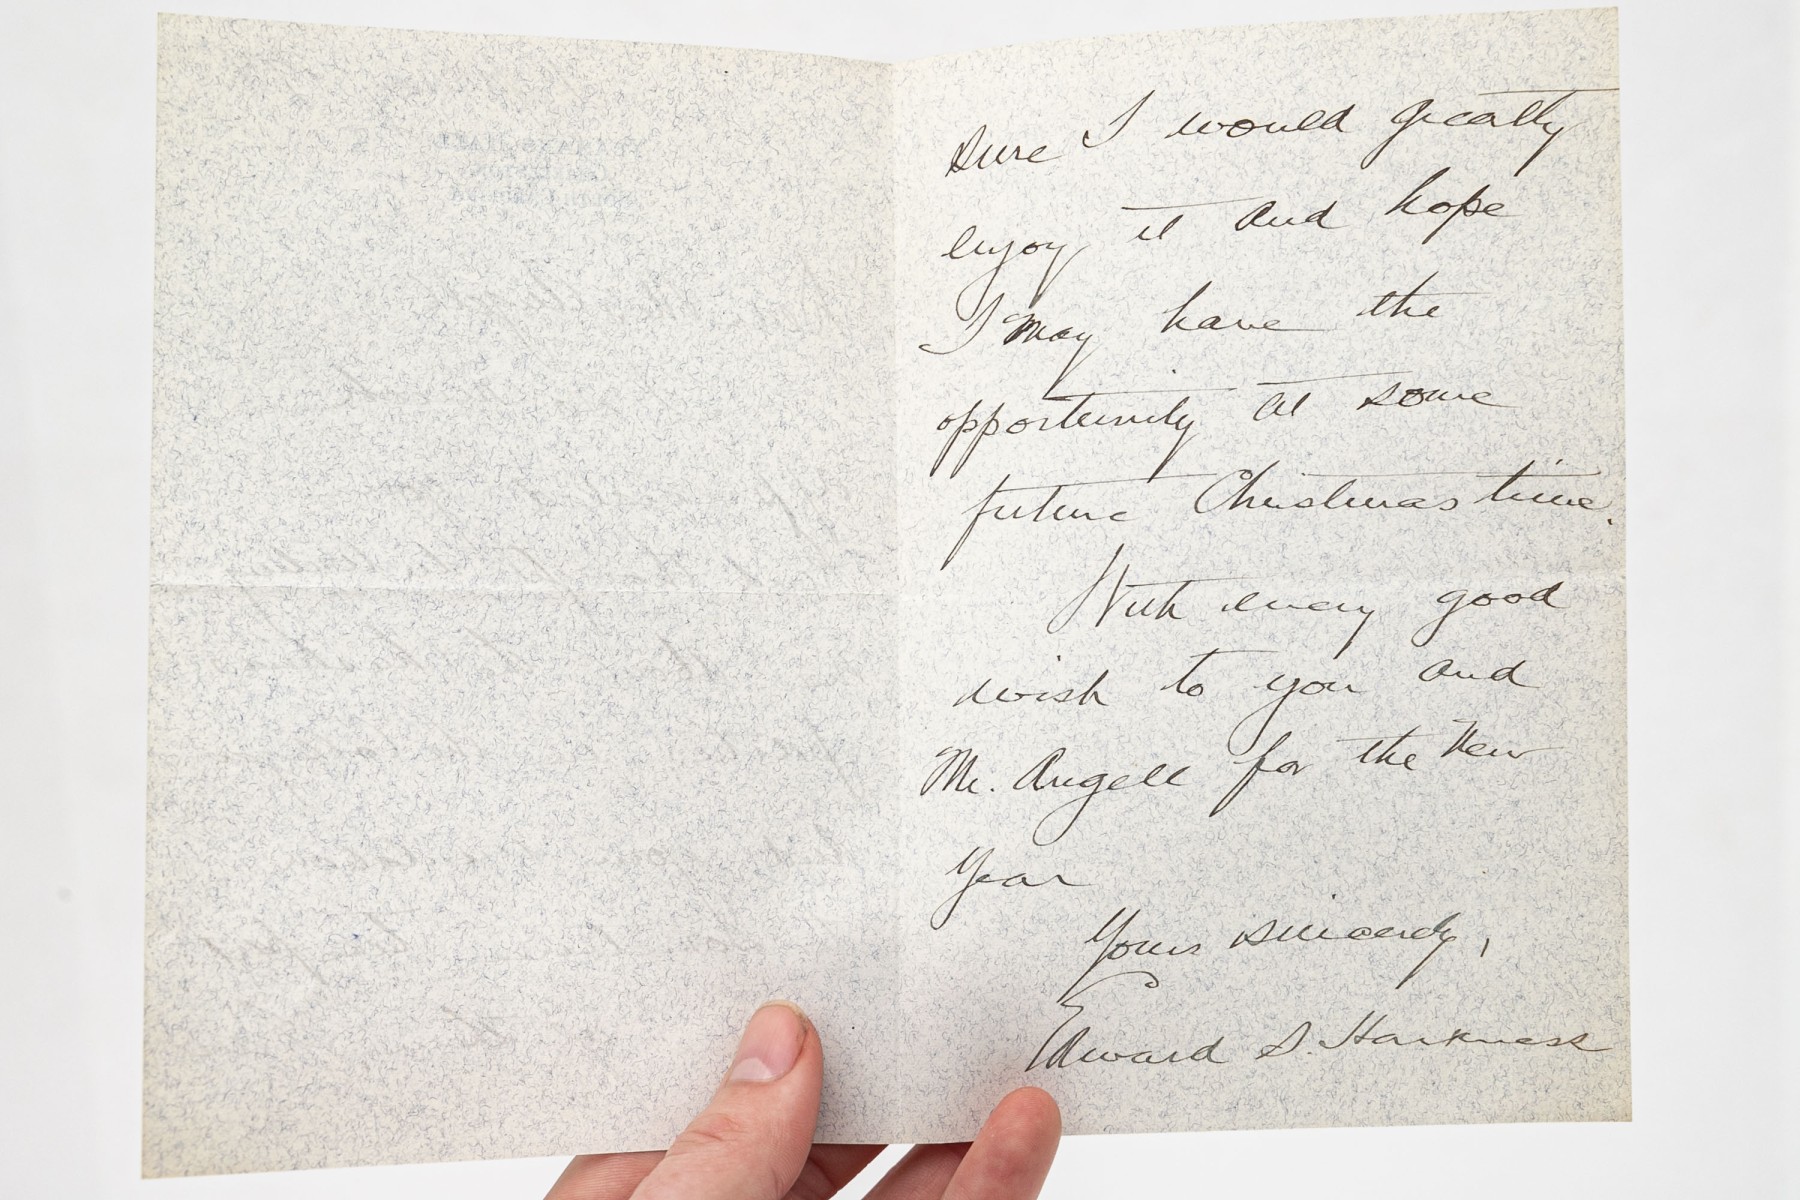 sure I would greatly
enjoy it and hope
I may have the
opportunity at some
future Christmas time.
With every good
wish to you and
Mr. Angell for the New
Year
Yours sincerely,
Edward S. Harkness